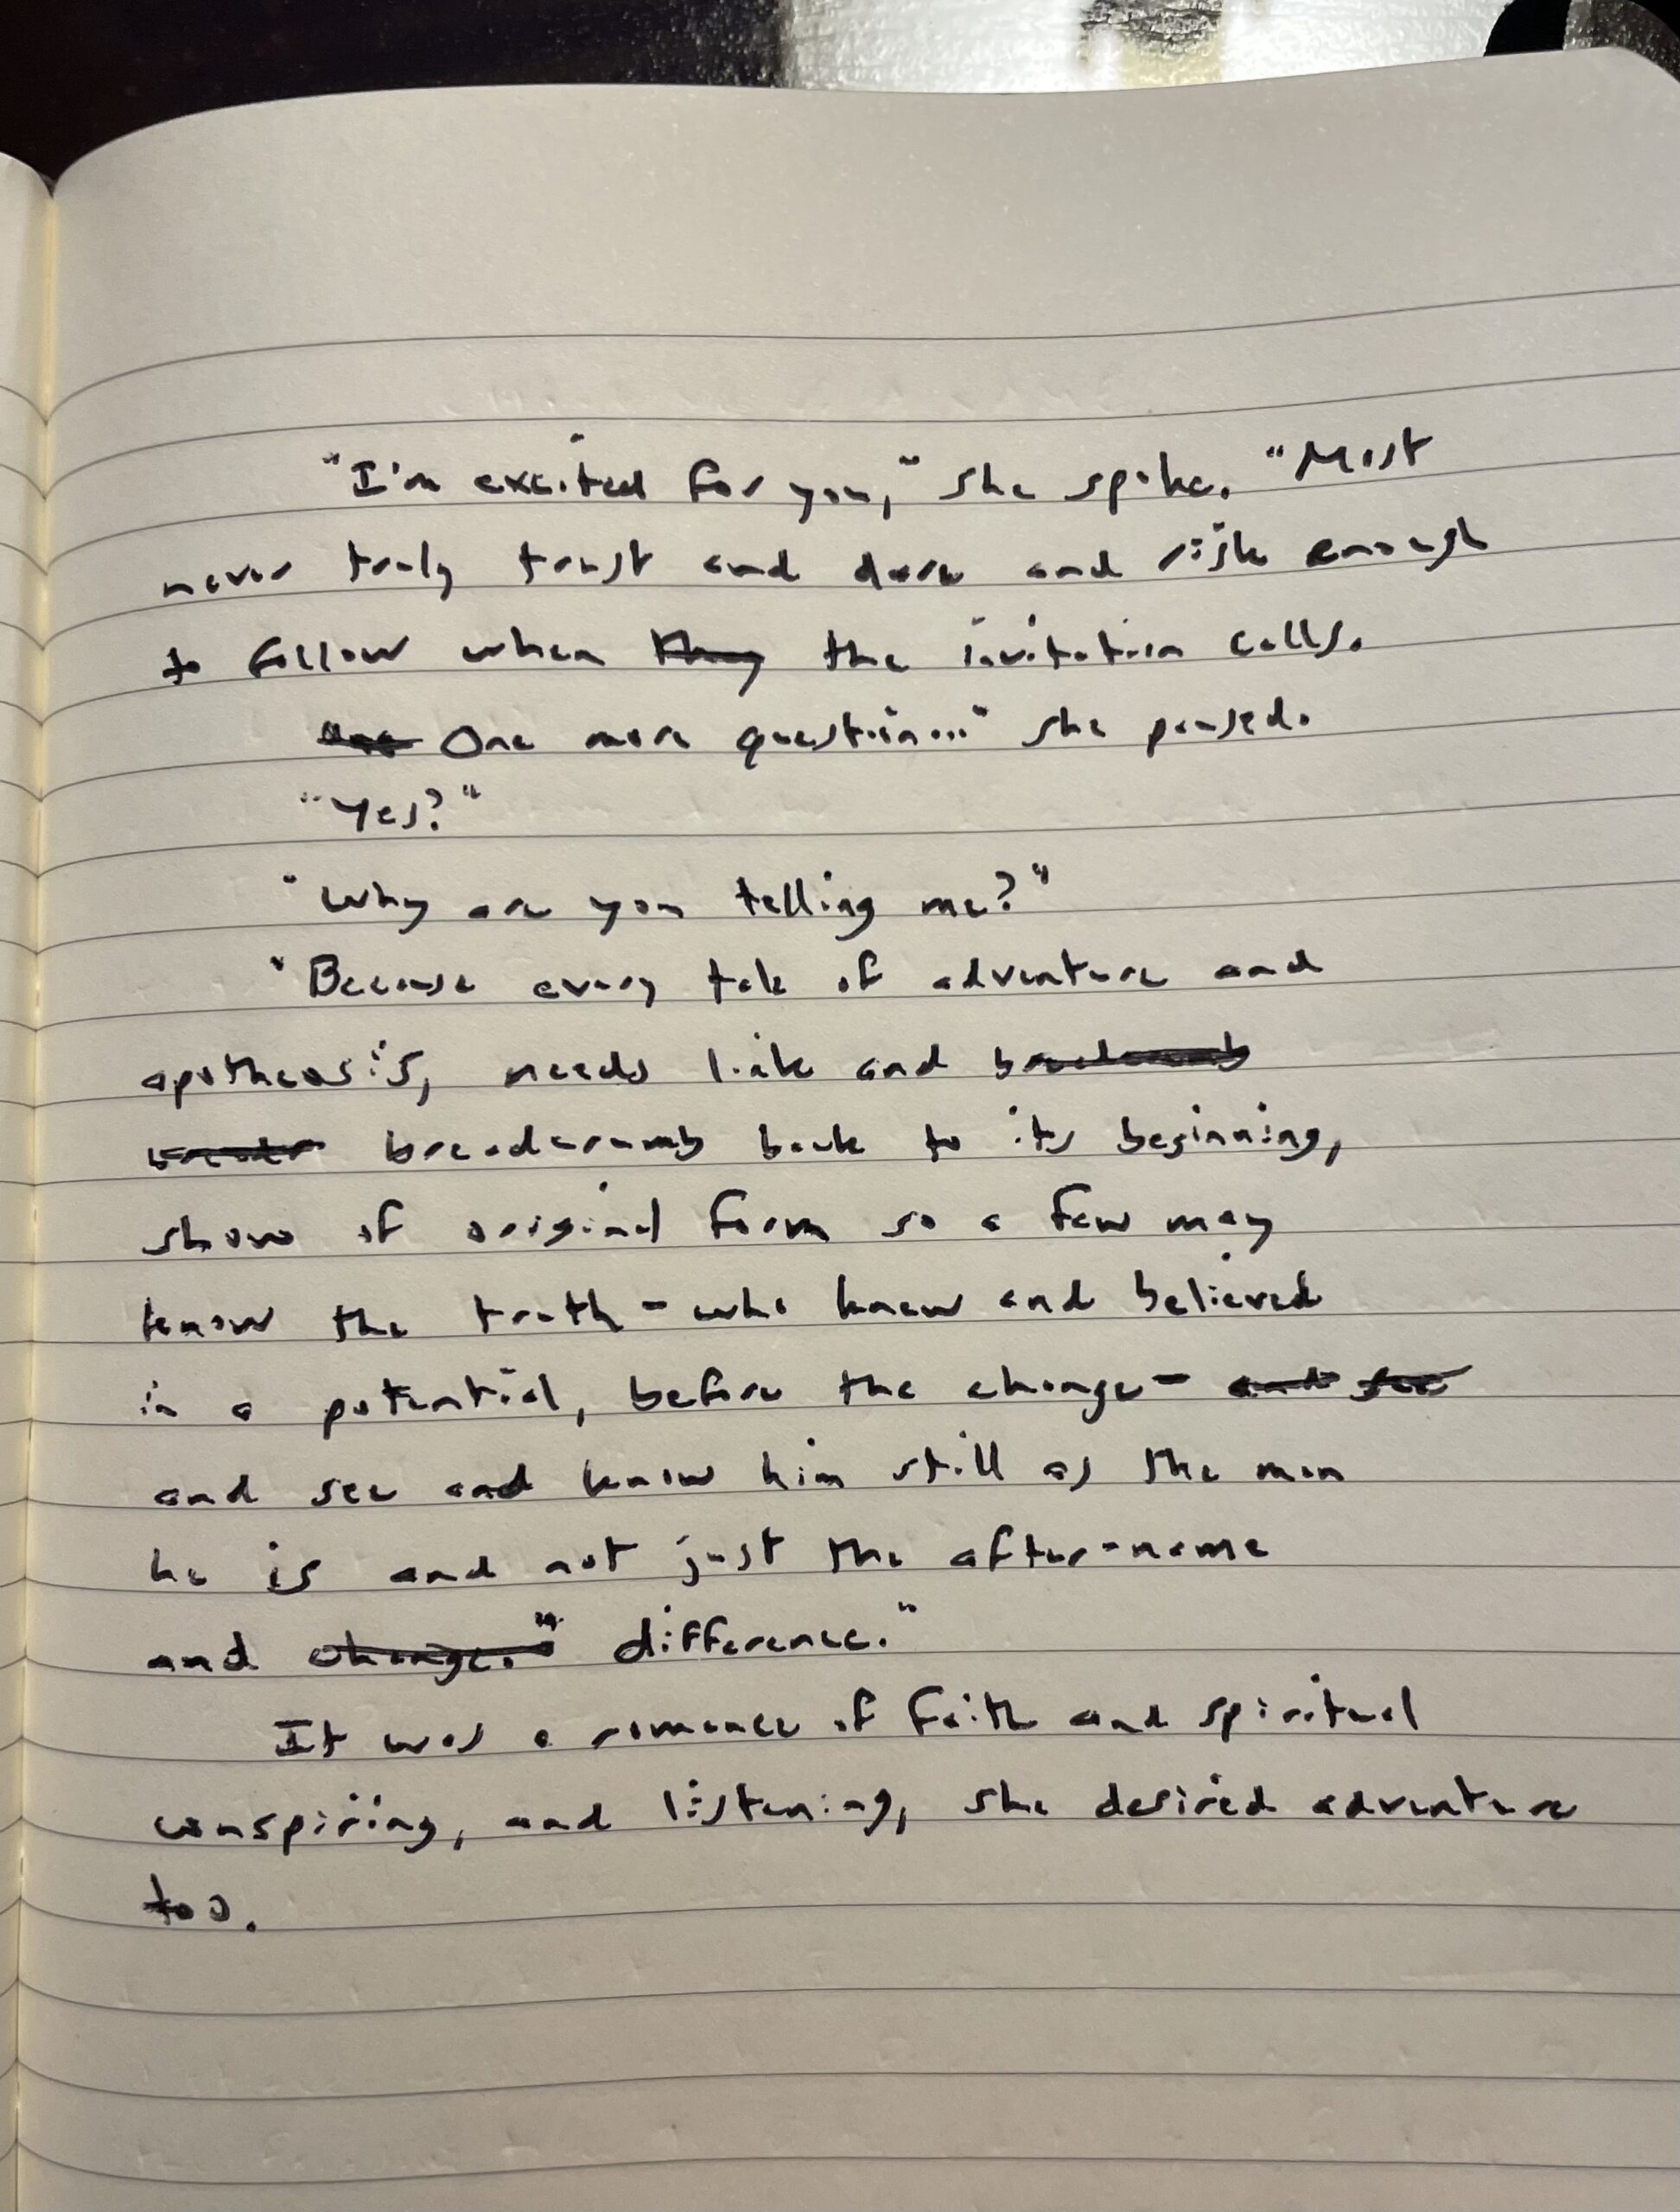 "I'm excited for you," she spoke. "Most
never truly trust and dare and risk enough
to follow when they the invitation calls.
One One more question..." she paused.
"Yes?"
"Why are you telling me?"
"Because every tale of adventure and
apotheosis, needs link and breadcrumb
breadcrumb back to its beginning,
show of original form so a few may
know the truth - who knew and believed
in a potential, before the change - and see
and see and know him still as the man
he is and not just the after-name
and change." difference."
It was a romance of faith and spiritual
conspiring, and listening, she desired adventure
too.